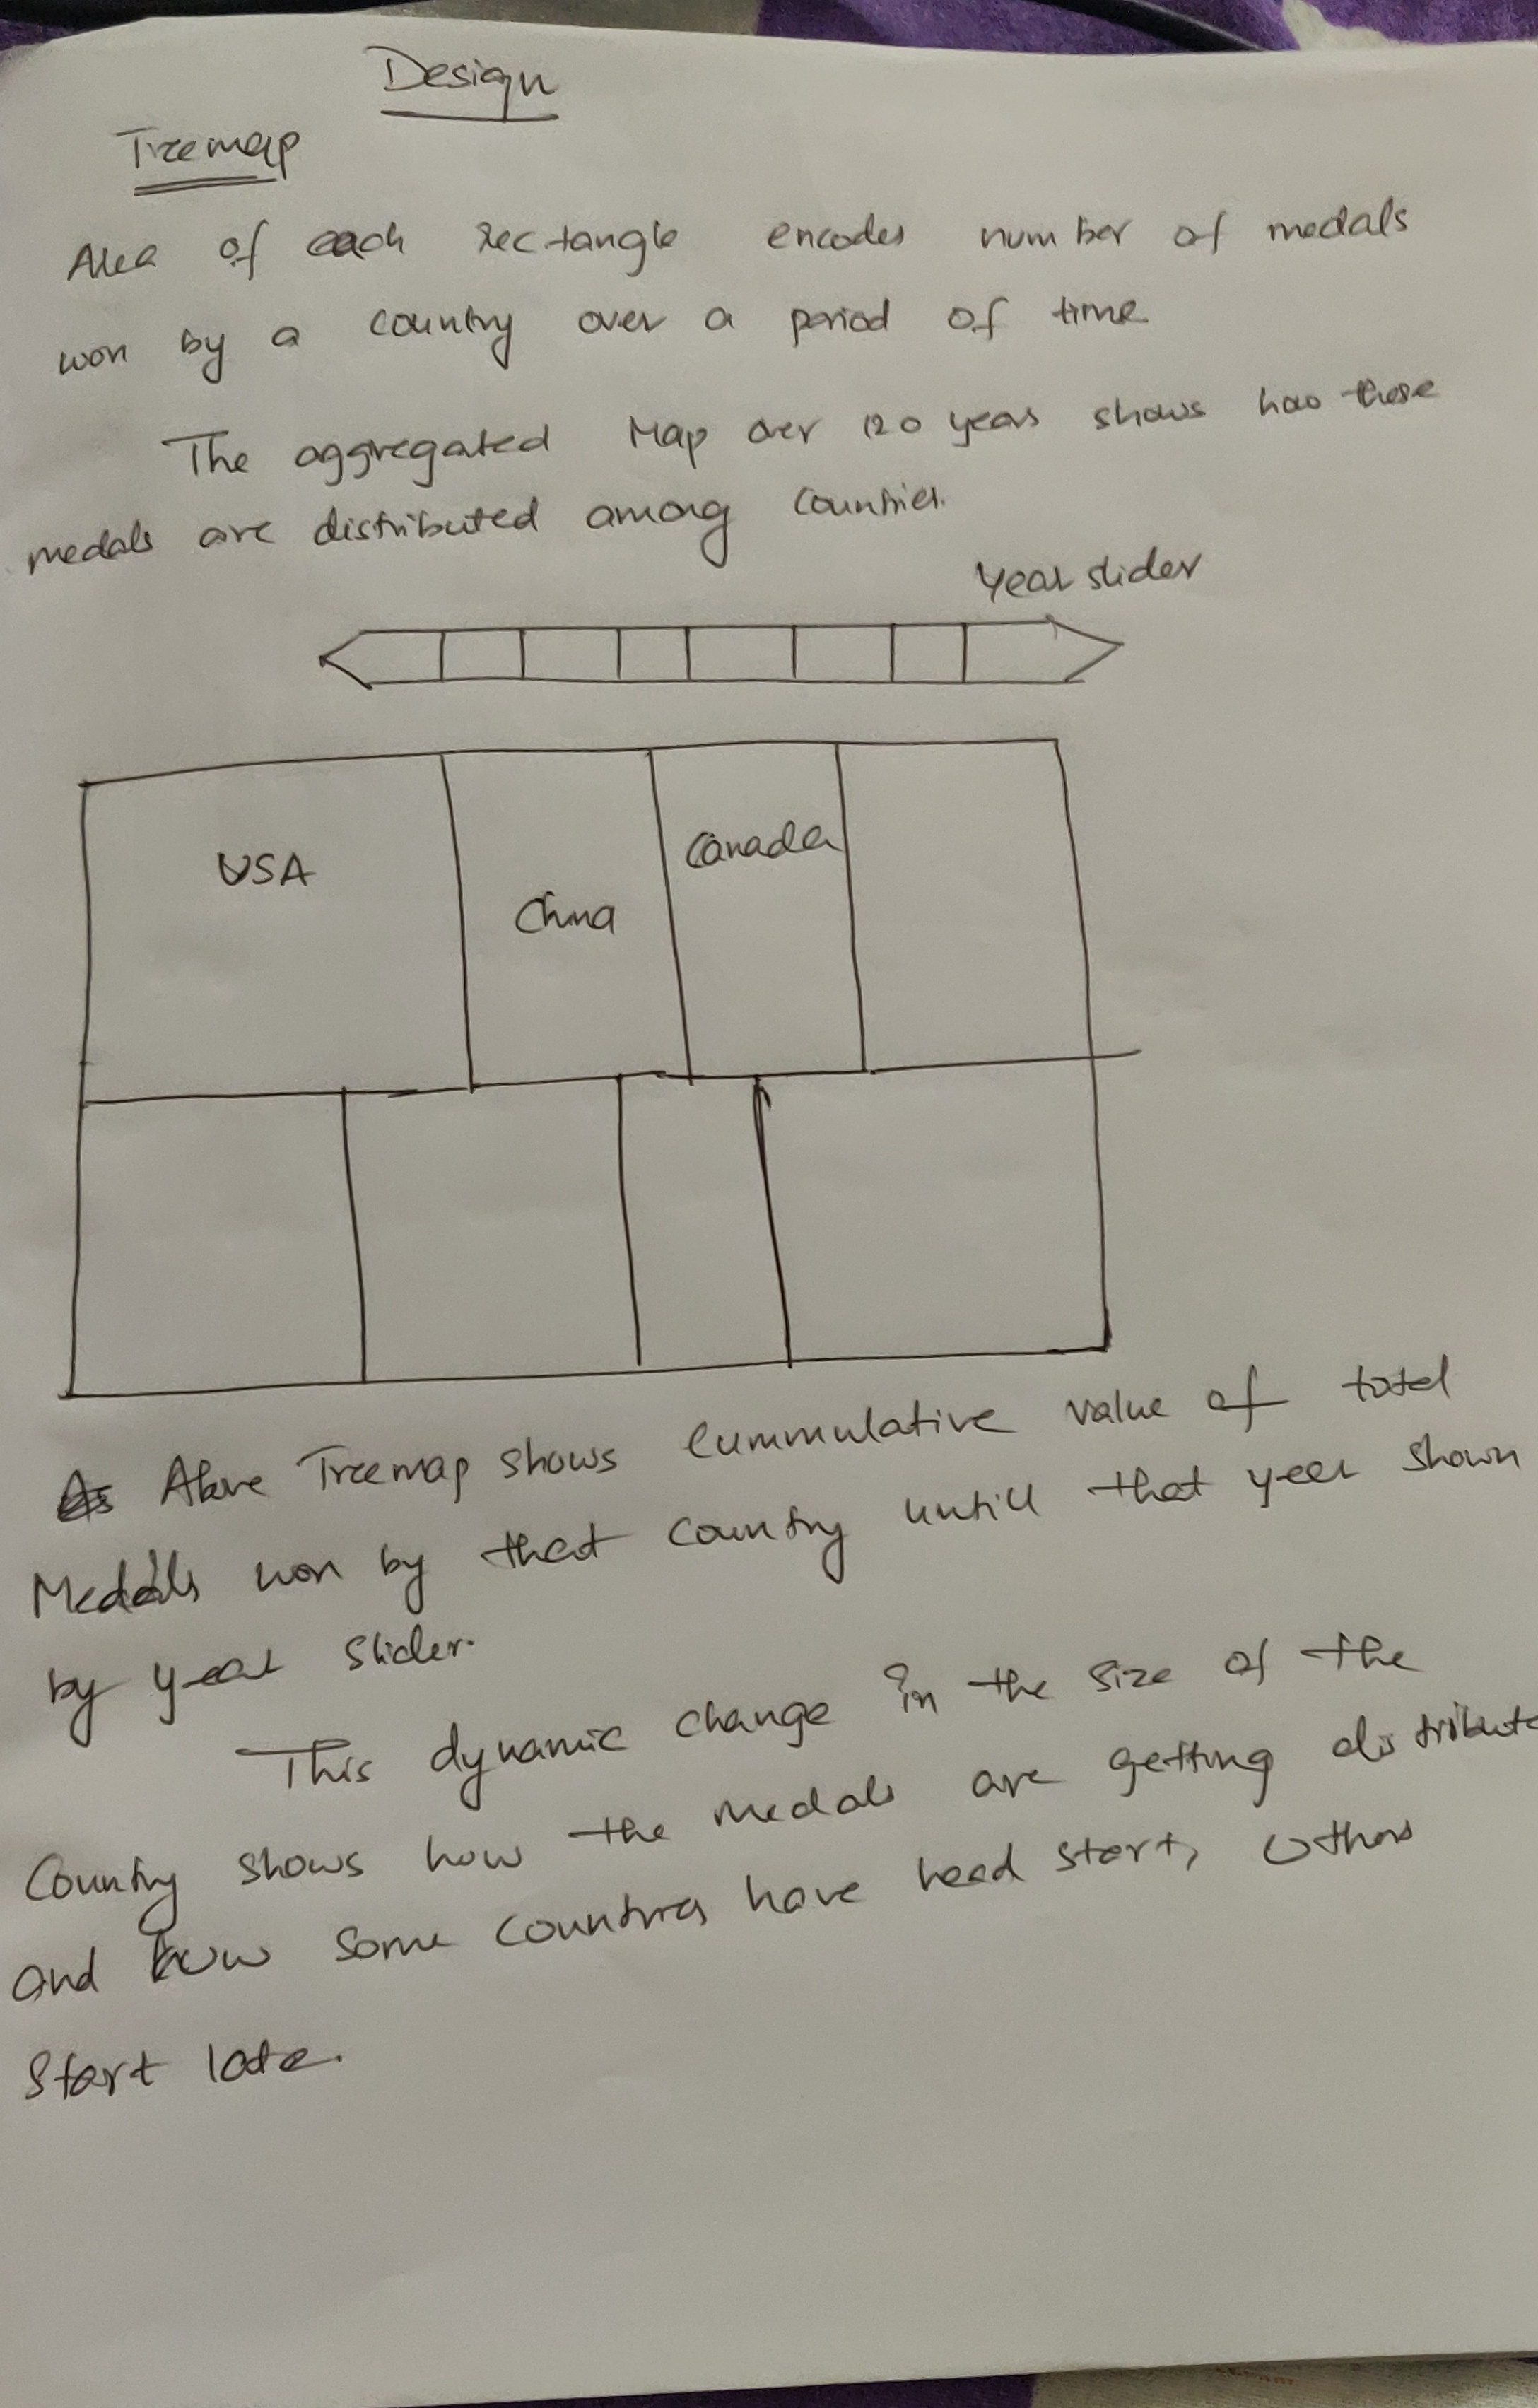 Design
Treemap
Area of each rectangle encodes number of medals
won by a country over a period of time
The aggregated Map over 120 years shows how these
medals are distributed among countries.
Year slider
USA
China
Canada
Above Treemap shows cummulative value of total
Medals won by that country untill that year shown
by year slider.
This dynamic change in the size of the
Country shows how the medals are getting distribute
and how some countries have head start, others
start late.